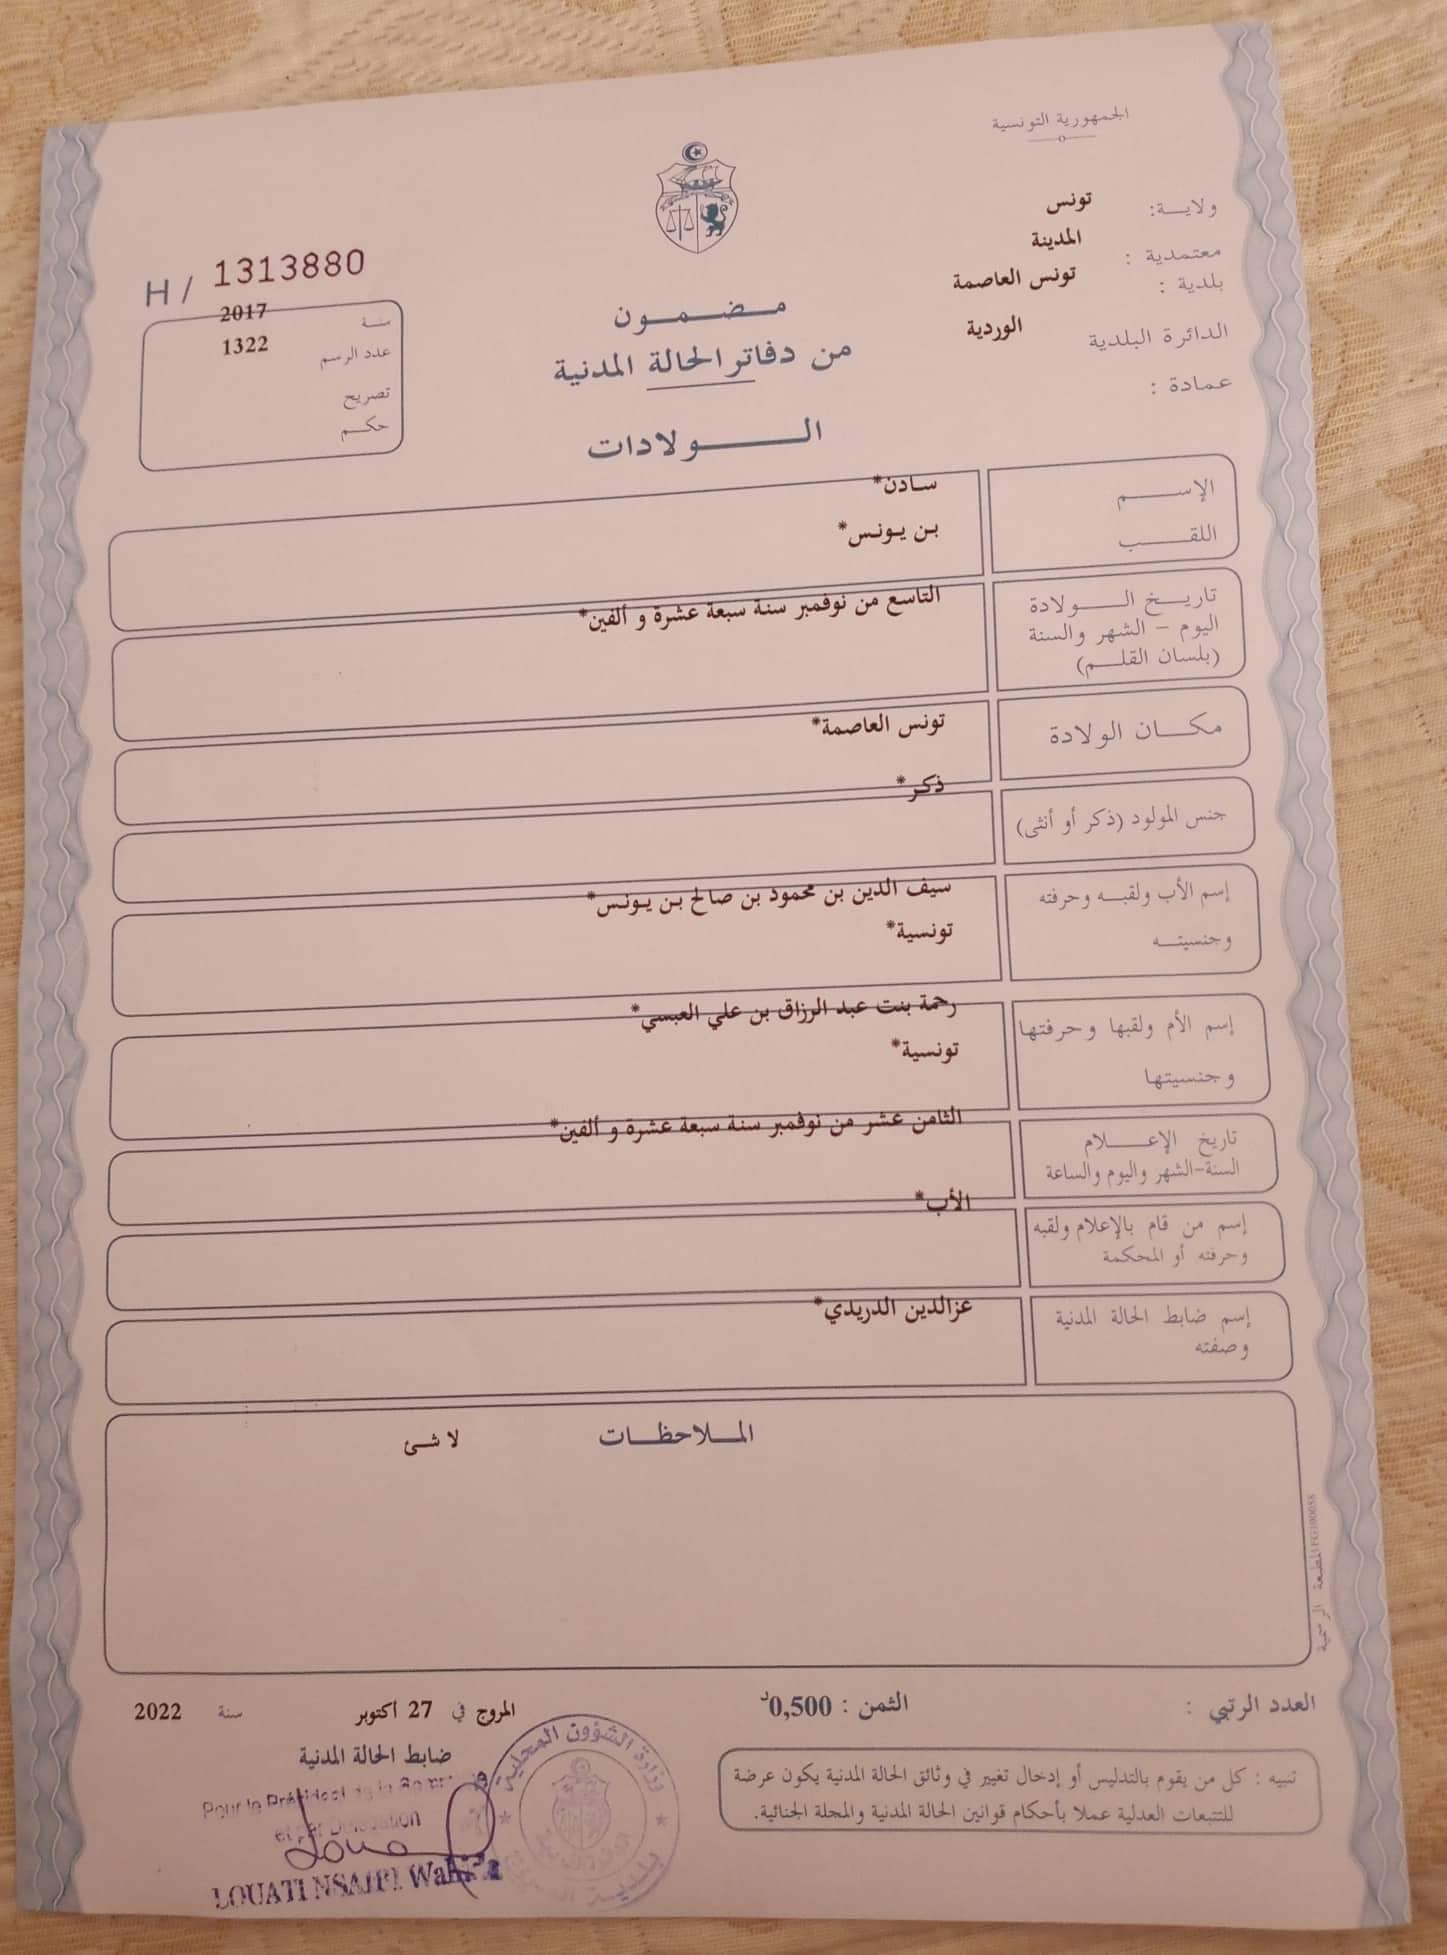 الجمهورية التونسية
ولايـــة: تونس
معتمدية : المدينة
بلدية : تونس العاصمة
الدائرة البلدية الوردية
عمادة :
H / 1313880
سنـة 2017
عدد الرسم 1322
تصريح
حكـــم
مـــضـــمـــون
من دفاتر الحالة المدنية
الـــــولادات
الإســـــم سـادن*
اللقـــــب بن يـونـس*
تاريـــخ الـــــولادة التاسع من نوفمبر سنة سبعة عشرة و ألفين*
اليوم – الشهر والسنة
(بلسان القلـــم)
مكـــان الولادة تونس العاصمة*
جنس المولود (ذكر أو أنثى) ذكـر*
إسم الأب ولقبـــه وحرفته سيف الدين بن محمود بن صالح بن يـونـس*
وجنسيتـــه تونسية*
إسم الأم ولقبها وحرفتها رحمة بنت عبد الرزاق بن علي العبسي*
وجنسيتها تونسية*
تاريخ الإعـــــلام الثامن عشر من نوفمبر سنة سبعة عشرة و ألفين*
السنة-الشهر واليوم والساعة
إسم من قام بالإعلام ولقبه الأب*
وحرفته أو المحكمة
إسم ضابط الحالة المدنية عزالدين الدريدي*
وصفته
المـــلاحظـــات لا شـئ
المطبعة الرسمية
العدد الرتبي :
الثمن : 0,500د
المروج في 27 أكتوبر سنة 2022
ضابط الحالة المدنية
تنبيه : كل من يقوم بالتدليس أو إدخال تغيير في وثائق الحالة المدنية يكون عرضة
للتتبعات العدلية عملا بأحكام قوانين الحالة المدنية والمجلة الجنائية.
Pour le Président de la
et par Délégation
LOUATI NSAIRI
وزارة الشؤون المحلية